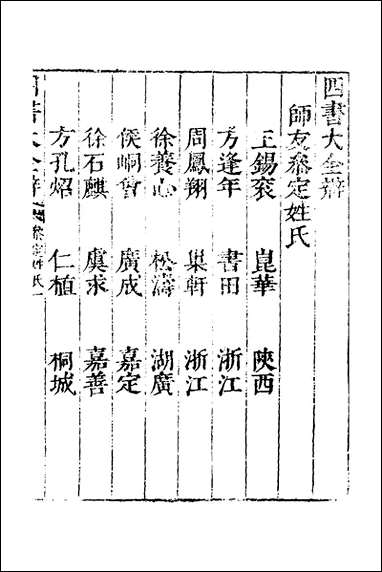 四書大全辯
師友叅定姓氏
王錫衮 崑華 陝西
方逢年 書田 浙江
周鳳翔 巢軒 浙江
徐養心 松濤 湖廣
侯峒曾 廣成 嘉定
徐石麒 虞求 嘉善
方孔炤 仁植 桐城
四書大全辯 叅定姓氏 一